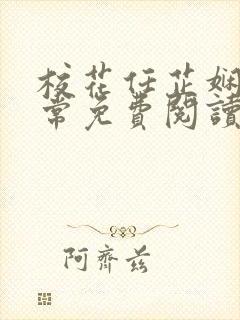 校花任芷娴
常免费閱讀
阿齊茲